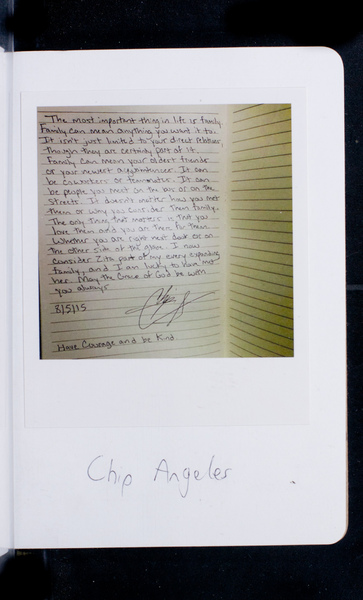 The most important thing in life is family.
Family can mean anything you want it to.
It isn't just limited to your direct relatives,
though they are certainly part of it.
Family can mean your oldest friends
or your newest acquaintances. It can
be coworkers or teammates. It can
be people you meet on the bus or on the
streets. It doesn't matter how you met
them or why you consider them family.
The only thing that matters is that you
love them and you are there for them.
Whether you are right next door or on
the other side of the globe. I now
consider Zita part of my every expanding
family, and I am lucky to have met
her. May the Grace of God be with
you always
8/5/15
Have Courage and be Kind.
Chip Angeles